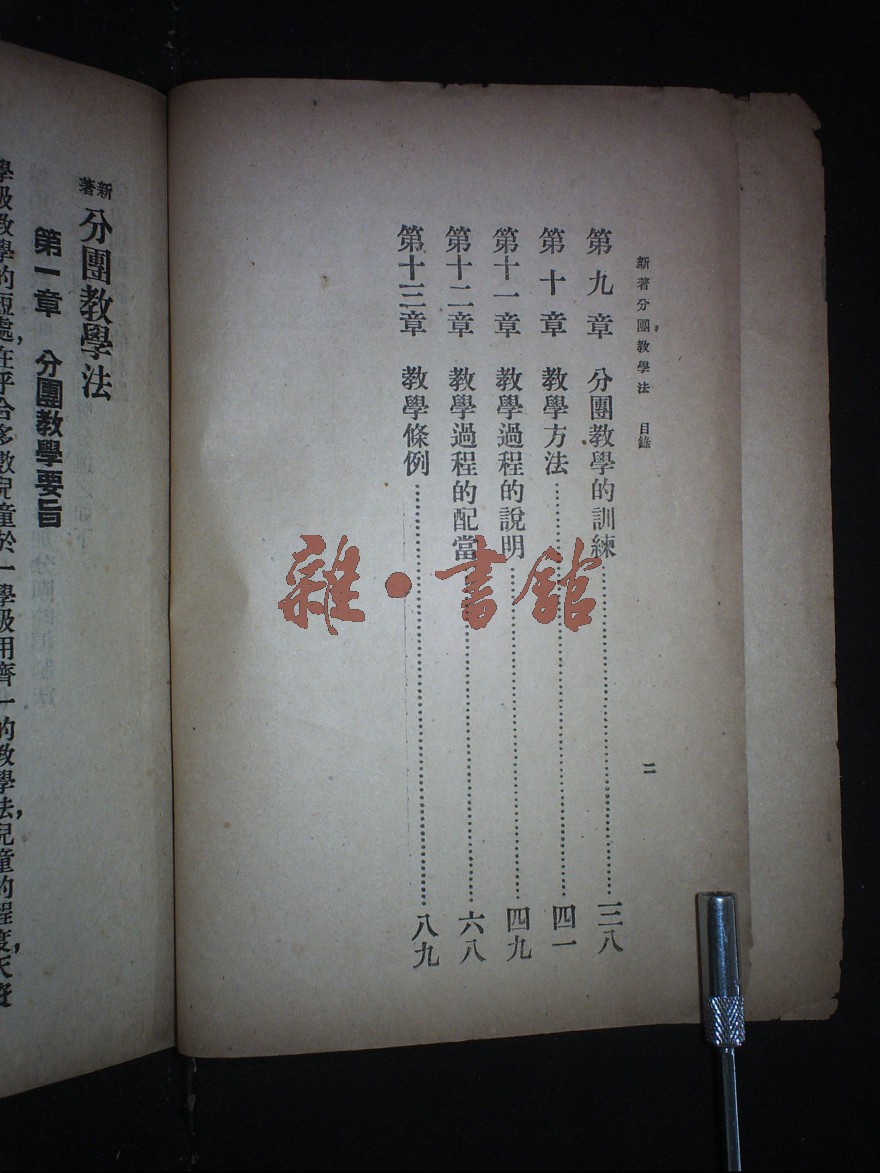 新著分團教學法 目錄
第九章 分團教學的訓練……三八
第十章 教學方法……四一
第十一章 教學過程的說明……四九
第十二章 教學過程的配當……六八
第十三章 教學條例……八九
二
新著 分團教學法
第一章 分團教學要旨
學級教學的短處,在乎合多數兒童於一學級用齊一的教學法,兒童的程度,天資
雜·書館